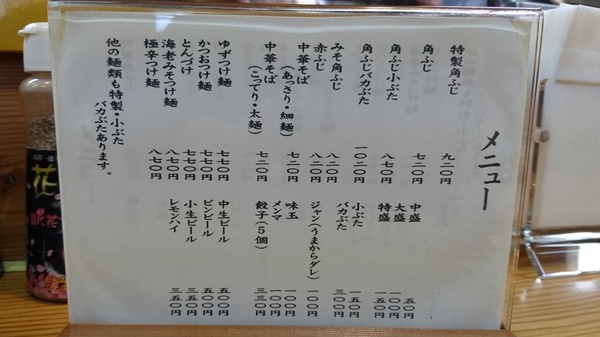 メニュー
特製角ふじ 九二〇円
角ふじ 七二〇円
角ふじ小ぶた 八七〇円
角ふじバカぶた 一〇二〇円
みそ角ふじ 八二〇円
赤ふじ 八二〇円
中華そば
(あっさり・細麺) 七二〇円
中華そば
(こってり・太麺) 七二〇円
ゆずつけ麺 七七〇円
かつおつけ麺 七七〇円
とんづけ 七七〇円
海老みそつけ麺 八七〇円
極辛つけ麺 八七〇円
他の麺類も特製・小ぶた
バカぶたあります。
中盛 五〇円
大盛 一〇〇円
特盛 一五〇円
小ぶた 一五〇円
バカぶた 三〇〇円
ジャン(うまからダレ) 一〇〇円
味玉 一〇〇円
メンマ 一〇〇円
餃子(5個) 三三〇円
中生ビール 五〇〇円
ビンビール 五〇〇円
小生ビール 三五〇円
レモンハイ 三五〇円
花